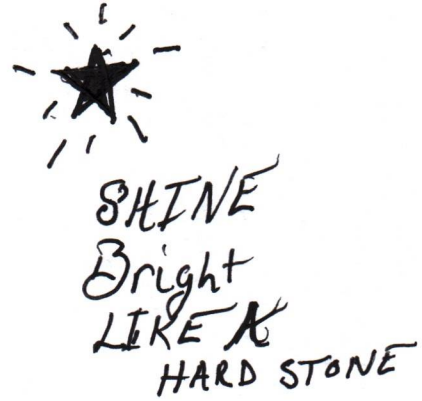 SHINE
Bright
LIKE A
HARD STONE